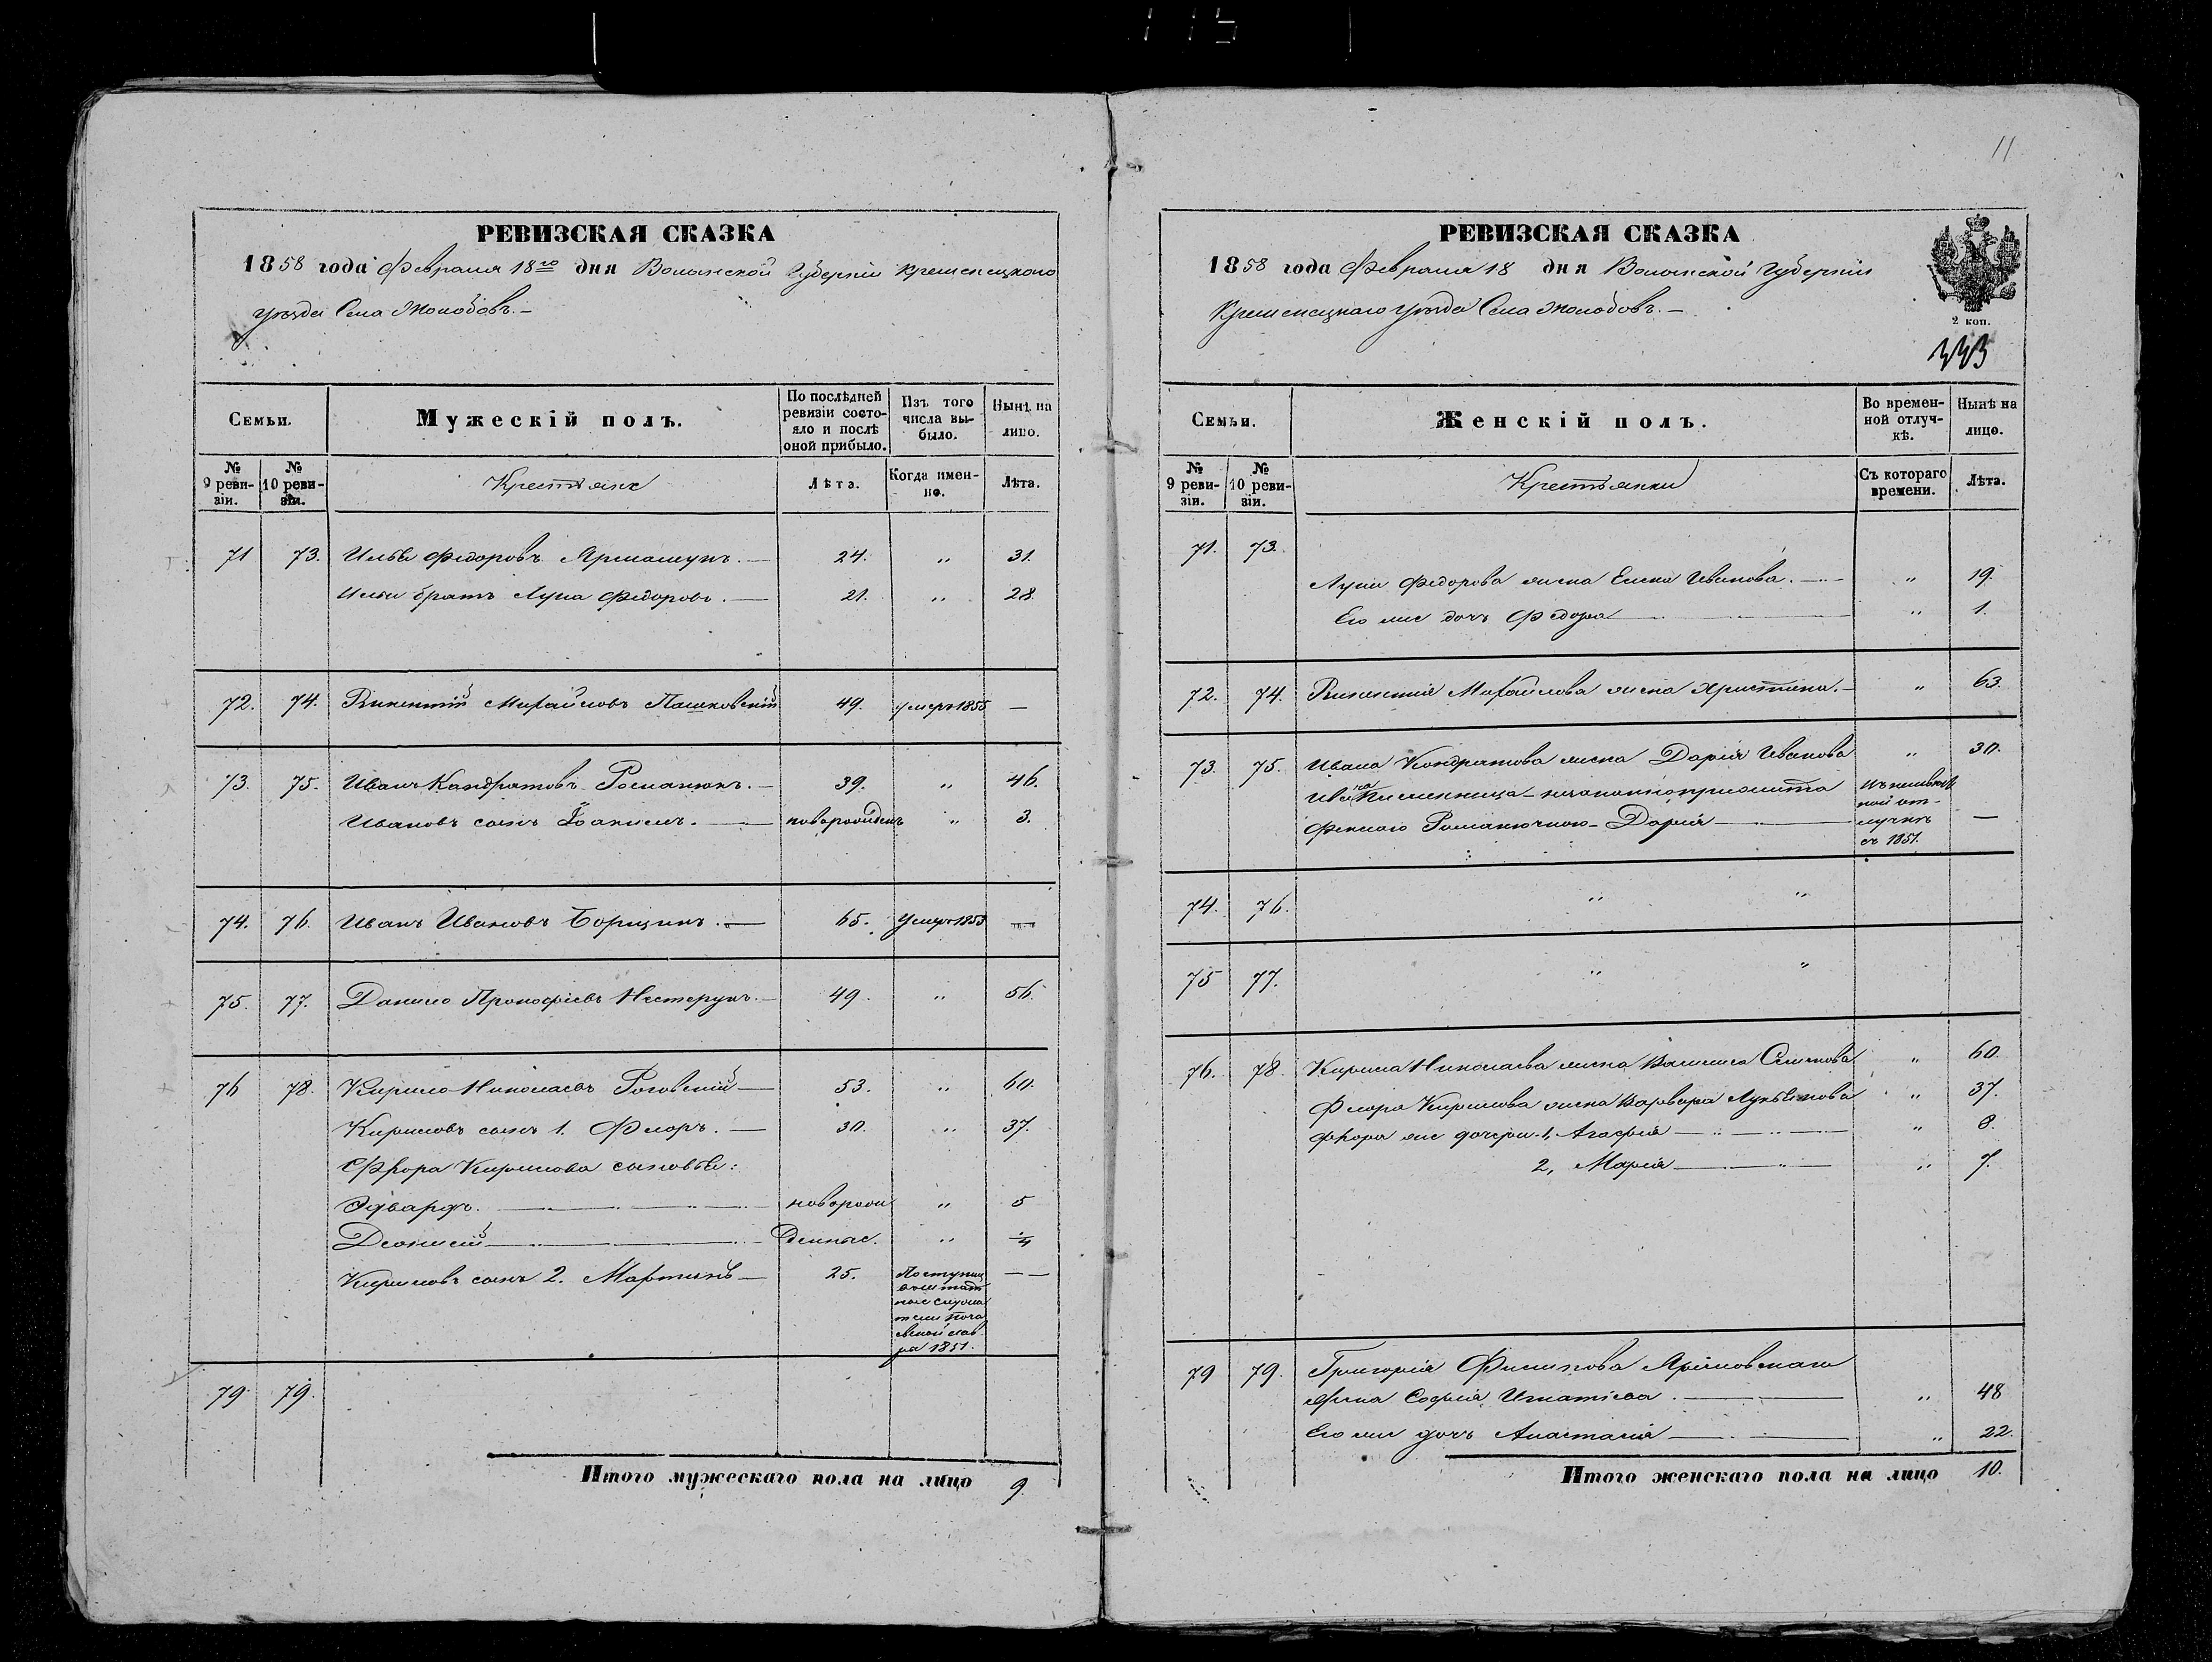 115
РЕВИЗСКАЯ СКАЗКА
1858 года Февраля 18го дня Волынской Губерніи Кременецкого
уѣзда Села Жолобовъ.
Семьи.
Мужескій полъ.
По послѣдней ревизіи состояло и послѣ оной прибыло.
Изъ того числа выбыло.
Нынѣ на лицо.
№ 9 ревизіи.
№ 10 ревизіи.
Крестьяне
Лѣта.
Когда именно.
Лѣта.
71 73. Илья Федоровъ Ярмошукъ. 24. " 31.
Ильи братъ Лука Федоровъ. 21. " 28.
72. 74. Викентій Михайловъ Пашковскій 49. умеръ 1855 —
73. 75. Иванъ Кондратовъ Романюкъ. 39. " 46.
Ивановъ сынъ Іоакимъ. новорожденъ " 3.
74. 76. Иванъ Ивановъ Борщикъ. 65. Умеръ 1853 —
75. 77. Данило Прокофіевъ Нестерукъ. 49. " 56.
76 78. Кирило Николаевъ Роговскій 53. " 60.
Кириловъ сынъ 1. Флоръ. 30. " 37.
Флора Кирилова сыновья:
Эдвардъ. новорож " 5
Деонисій денные. " ¼
Кириловъ сынъ 2. Мартынъ 25. Поступил в штатные служители Почаевской лавра 1851. —
79 79.
Итого мужескаго пола на лицо 9.
11
РЕВИЗСКАЯ СКАЗКА
1858 года Февраля 18 дня Волынской Губерніи
Кременецкаго уѣзда Села Жолобовъ.
2 коп.
Семьи.
Женскій полъ.
Во временной отлучкѣ.
Нынѣ на лицо.
№ 9 ревизіи.
№ 10 ревизіи.
Крестьянки
Съ котораго времени.
Лѣта.
71. 73.
Луки Федорова жена Елена Иванова. " 19.
Его же дочь Федора " 1.
72. 74. Викентія Михайлова жена Христина. " 63.
73. 75. Ивана Кондратова жена Дарія Иванова " 30.
Ива
Романючкою Дарія отлучкѣ съ 1851. —
74. 76. " "
75 77. " "
76. 78 Кирила Николаева жена " 60.
Флора Кирилова жена Варвара Лукьянова " 37.
Флора же дочери 1, Агафія " 8.
2, Марія " 7.
79 79. Григорія Филипова
жена Софія Игнатіева. " 48
Его же дочь Анастасія " 22.
Итого женскаго пола на лицо 10.